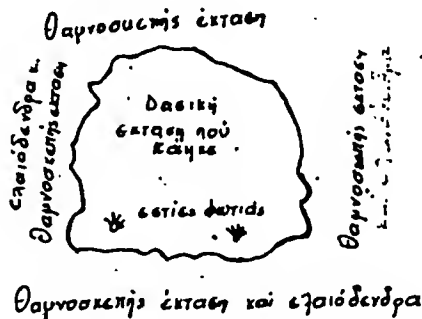 Θαμνοσκεπής έκταση
ελαιόδενδρα κ.
θαμνοσκεπής έκταση
Δασική
έκταση πού
κάηκε
εστίες φωτιάς
Θαμνοσκεπής έκταση
και
Θαμνοσκεπής έκταση καί ελαιόδενδρα